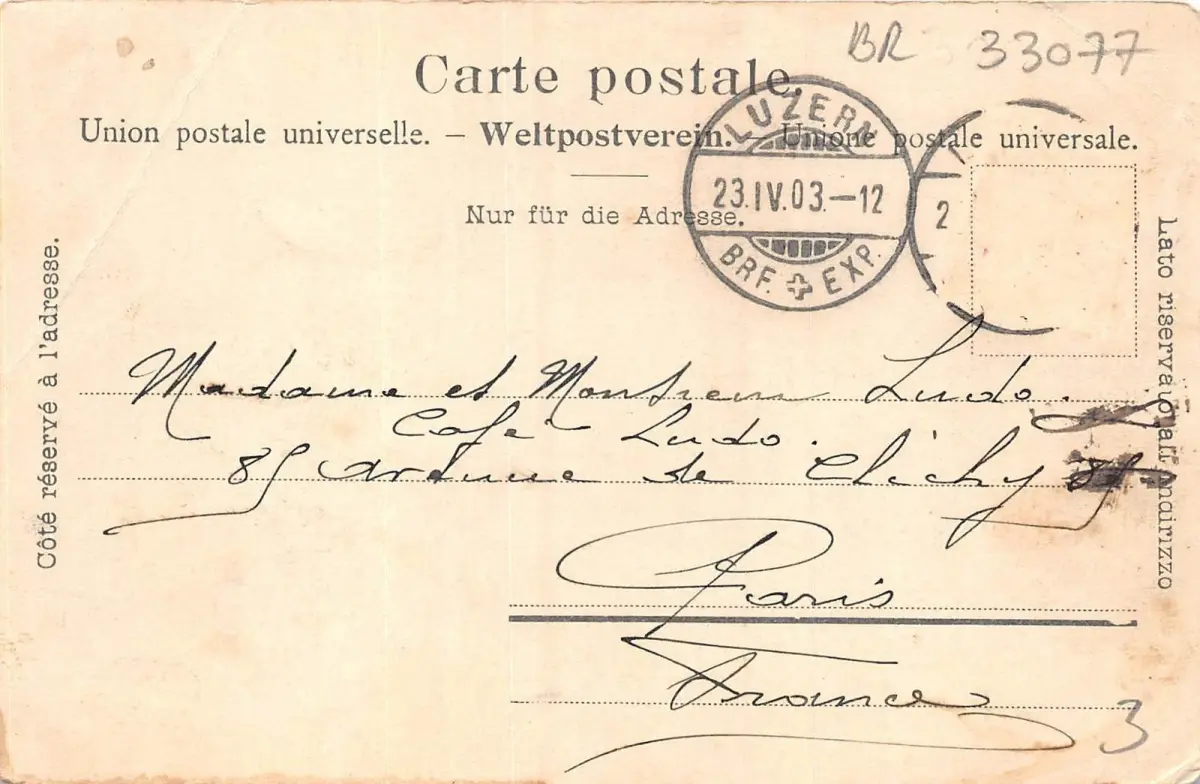 BR 33077
Carte postale.
Union postale universelle. – Weltpostverein. – Unione postale universale.
LUZERN
23.IV.03.–12
BRF. EXP.
2
Nur für die Adresse.
Côté réservé à l'adresse.
Lato riservato all' indirizzo
Madame et Monsieur Ludo.
Café Ludo.
85 avenue de Clichy 85
Paris
France
3